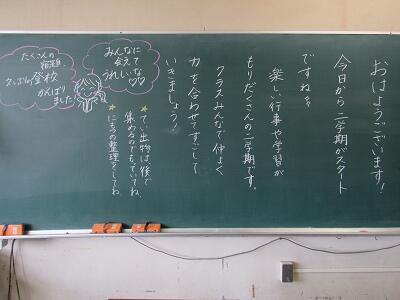 おはようございます!
今日から二学期がスタート
ですね
楽しい行事や学習が
もりだくさんの二学期です。
クラスみんなで仲よく
力を合わせてすごして
いきましょう!
★てい出物は、後で
集めるのでもっていてね。
★にもつの整理をしてね。
みんなに
会えて
うれしいな♡♡
たくさんの
宿題
久しぶりの登校
がんばり
ました